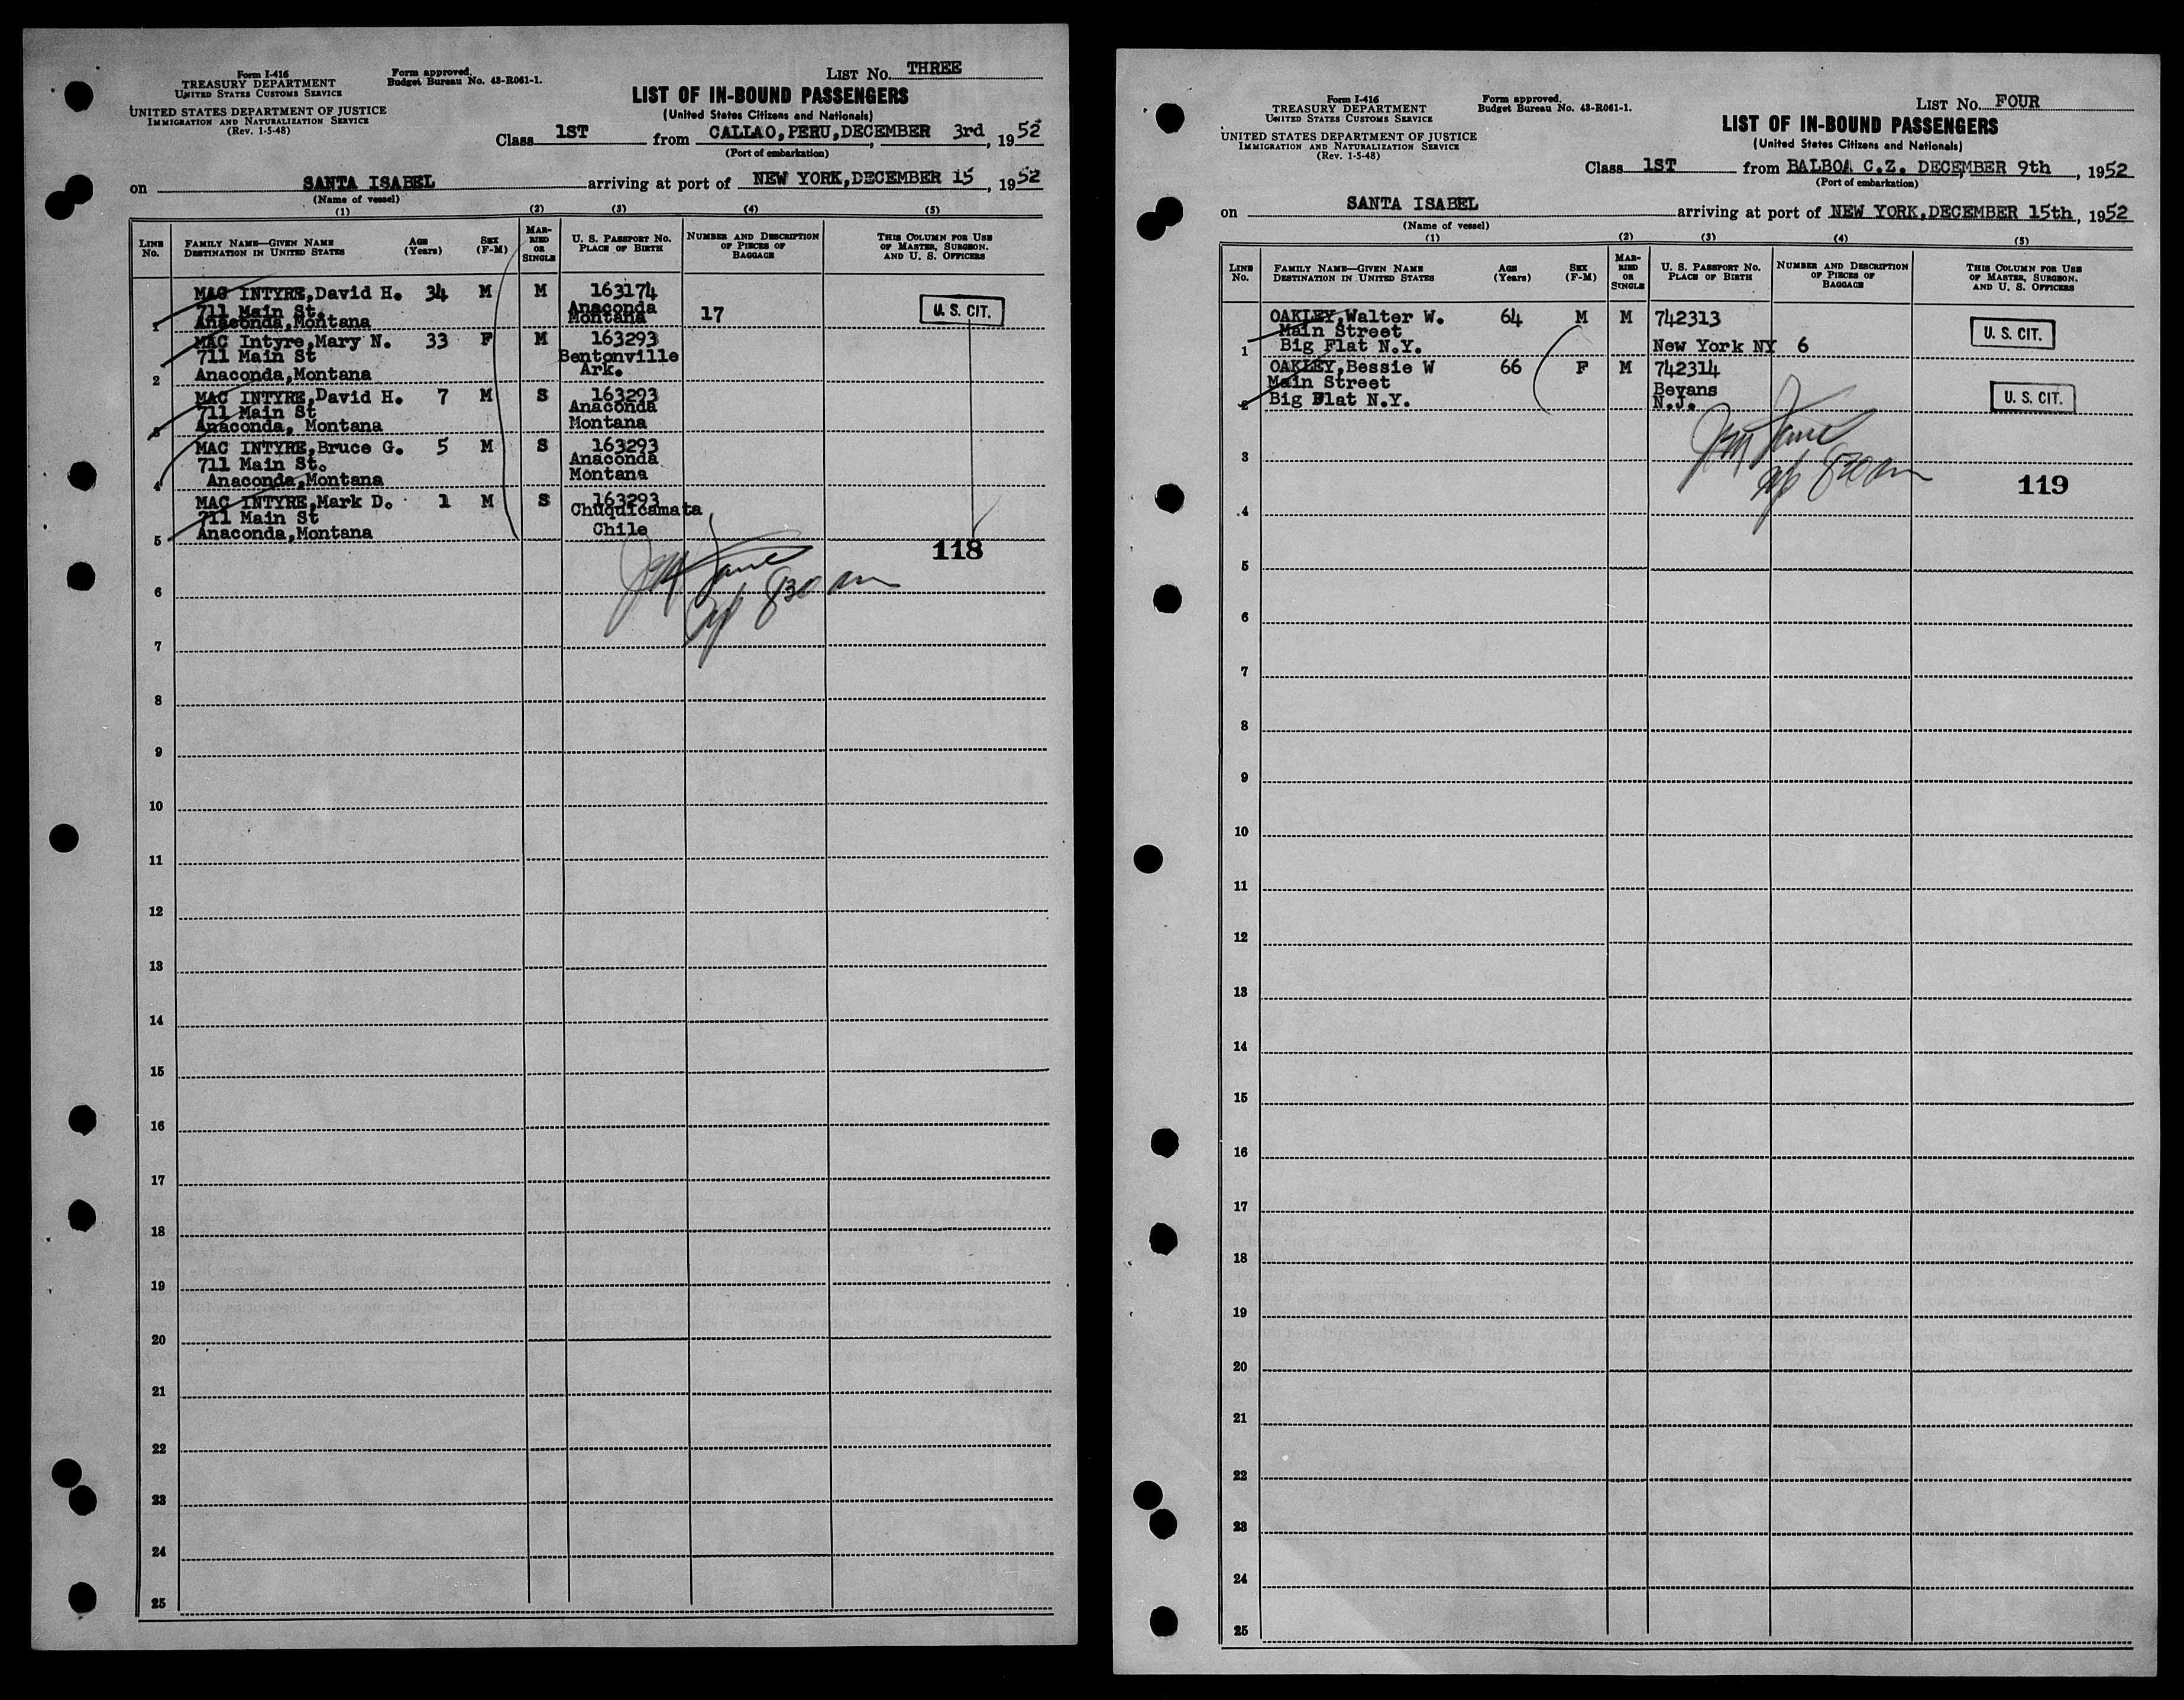 Form I-416
TREASURY DEPARTMENT
UNITED STATES CUSTOMS SERVICE
UNITED STATES DEPARTMENT OF JUSTICE
IMMIGRATION AND NATURALIZATION SERVICE
(Rev. 1-5-48)
Form approved.
Budget Bureau No. 43-R061-1.
LIST NO. THREE
LIST OF IN-BOUND PASSENGERS
(United States Citizens and Nationals)
Class 1ST from CALLAO, PERU, DECEMBER 3rd, 1952
(Port of embarkation)
on SANTA ISABEL arriving at port of NEW YORK, DECEMBER 15, 1952
(Name of vessel)
(1) (2) (3) (4) (5)
LINE NO.
FAMILY NAME—GIVEN NAME
DESTINATION IN UNITED STATES
AGE (Years)
SEX (F-M)
MARRIED OR SINGLE
U. S. PASSPORT NO.
PLACE OF BIRTH
NUMBER AND DESCRIPTION OF PIECES OF BAGGAGE
THIS COLUMN FOR USE OF MASTER, SURGEON, AND U. S. OFFICERS
MAC INTYRE, David H. 34 M M 163174
711 Main St. Anaconda
1 Anaconda, Montana Montana 17 U. S. CIT.
MAC Intyre, Mary N. 33 F M 163293
711 Main St Bentonville
2 Anaconda, Montana Ark.
MAC INTYRE, David H. 7 M S 163293
711 Main St Anaconda
3 Anaconda, Montana Montana
MAC INTYRE, Bruce G. 5 M S 163293
711 Main St. Anaconda
4 Anaconda, Montana Montana
MAC INTYRE, Mark D. 1 M S 163293
711 Main St Chuquicamata
5 Anaconda, Montana Chile
118
830 am
6
7
8
9
10
11
12
13
14
15
16
17
18
19
20
21
22
23
24
25
Form I-416
TREASURY DEPARTMENT
UNITED STATES CUSTOMS SERVICE
UNITED STATES DEPARTMENT OF JUSTICE
IMMIGRATION AND NATURALIZATION SERVICE
(Rev. 1-5-48)
Form approved.
Budget Bureau No. 43-R061-1.
LIST NO. FOUR
LIST OF IN-BOUND PASSENGERS
(United States Citizens and Nationals)
Class 1ST from BALBOA C.Z. DECEMBER 9th, 1952
(Port of embarkation)
on SANTA ISABEL arriving at port of NEW YORK, DECEMBER 15th, 1952
(Name of vessel)
(1) (2) (3) (4) (5)
LINE NO.
FAMILY NAME—GIVEN NAME
DESTINATION IN UNITED STATES
AGE (Years)
SEX (F-M)
MARRIED OR SINGLE
U. S. PASSPORT NO.
PLACE OF BIRTH
NUMBER AND DESCRIPTION OF PIECES OF BAGGAGE
THIS COLUMN FOR USE OF MASTER, SURGEON, AND U. S. OFFICERS
OAKLEY, Walter W. 64 M M 742313
Main Street
1 Big Flat N.Y. New York NY 6 U. S. CIT.
OAKLEY, Bessie W 66 F M 742314
Main Street Bevans
2 Big Flat N.Y. N.J. U. S. CIT.
830 am
119
3
4
5
6
7
8
9
10
11
12
13
14
15
16
17
18
19
20
21
22
23
24
25